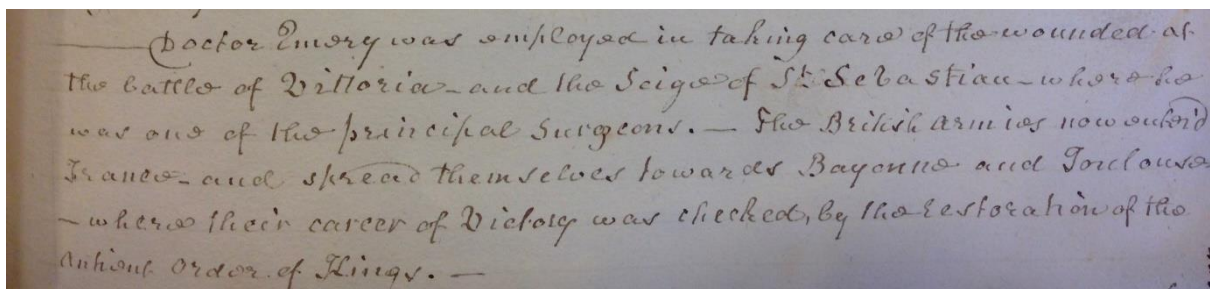 Doctor Emery was employed in taking care of the wounded at
the battle of Vittoria - and the Seige of St. Sebastian - where he
was one of the principal Surgeons. — The British Armies now enterd
France - and spread themselves towards Bayonne and Toulouse
- where their career of Victory was checked, by the restoration of the
antient order of Kings. —